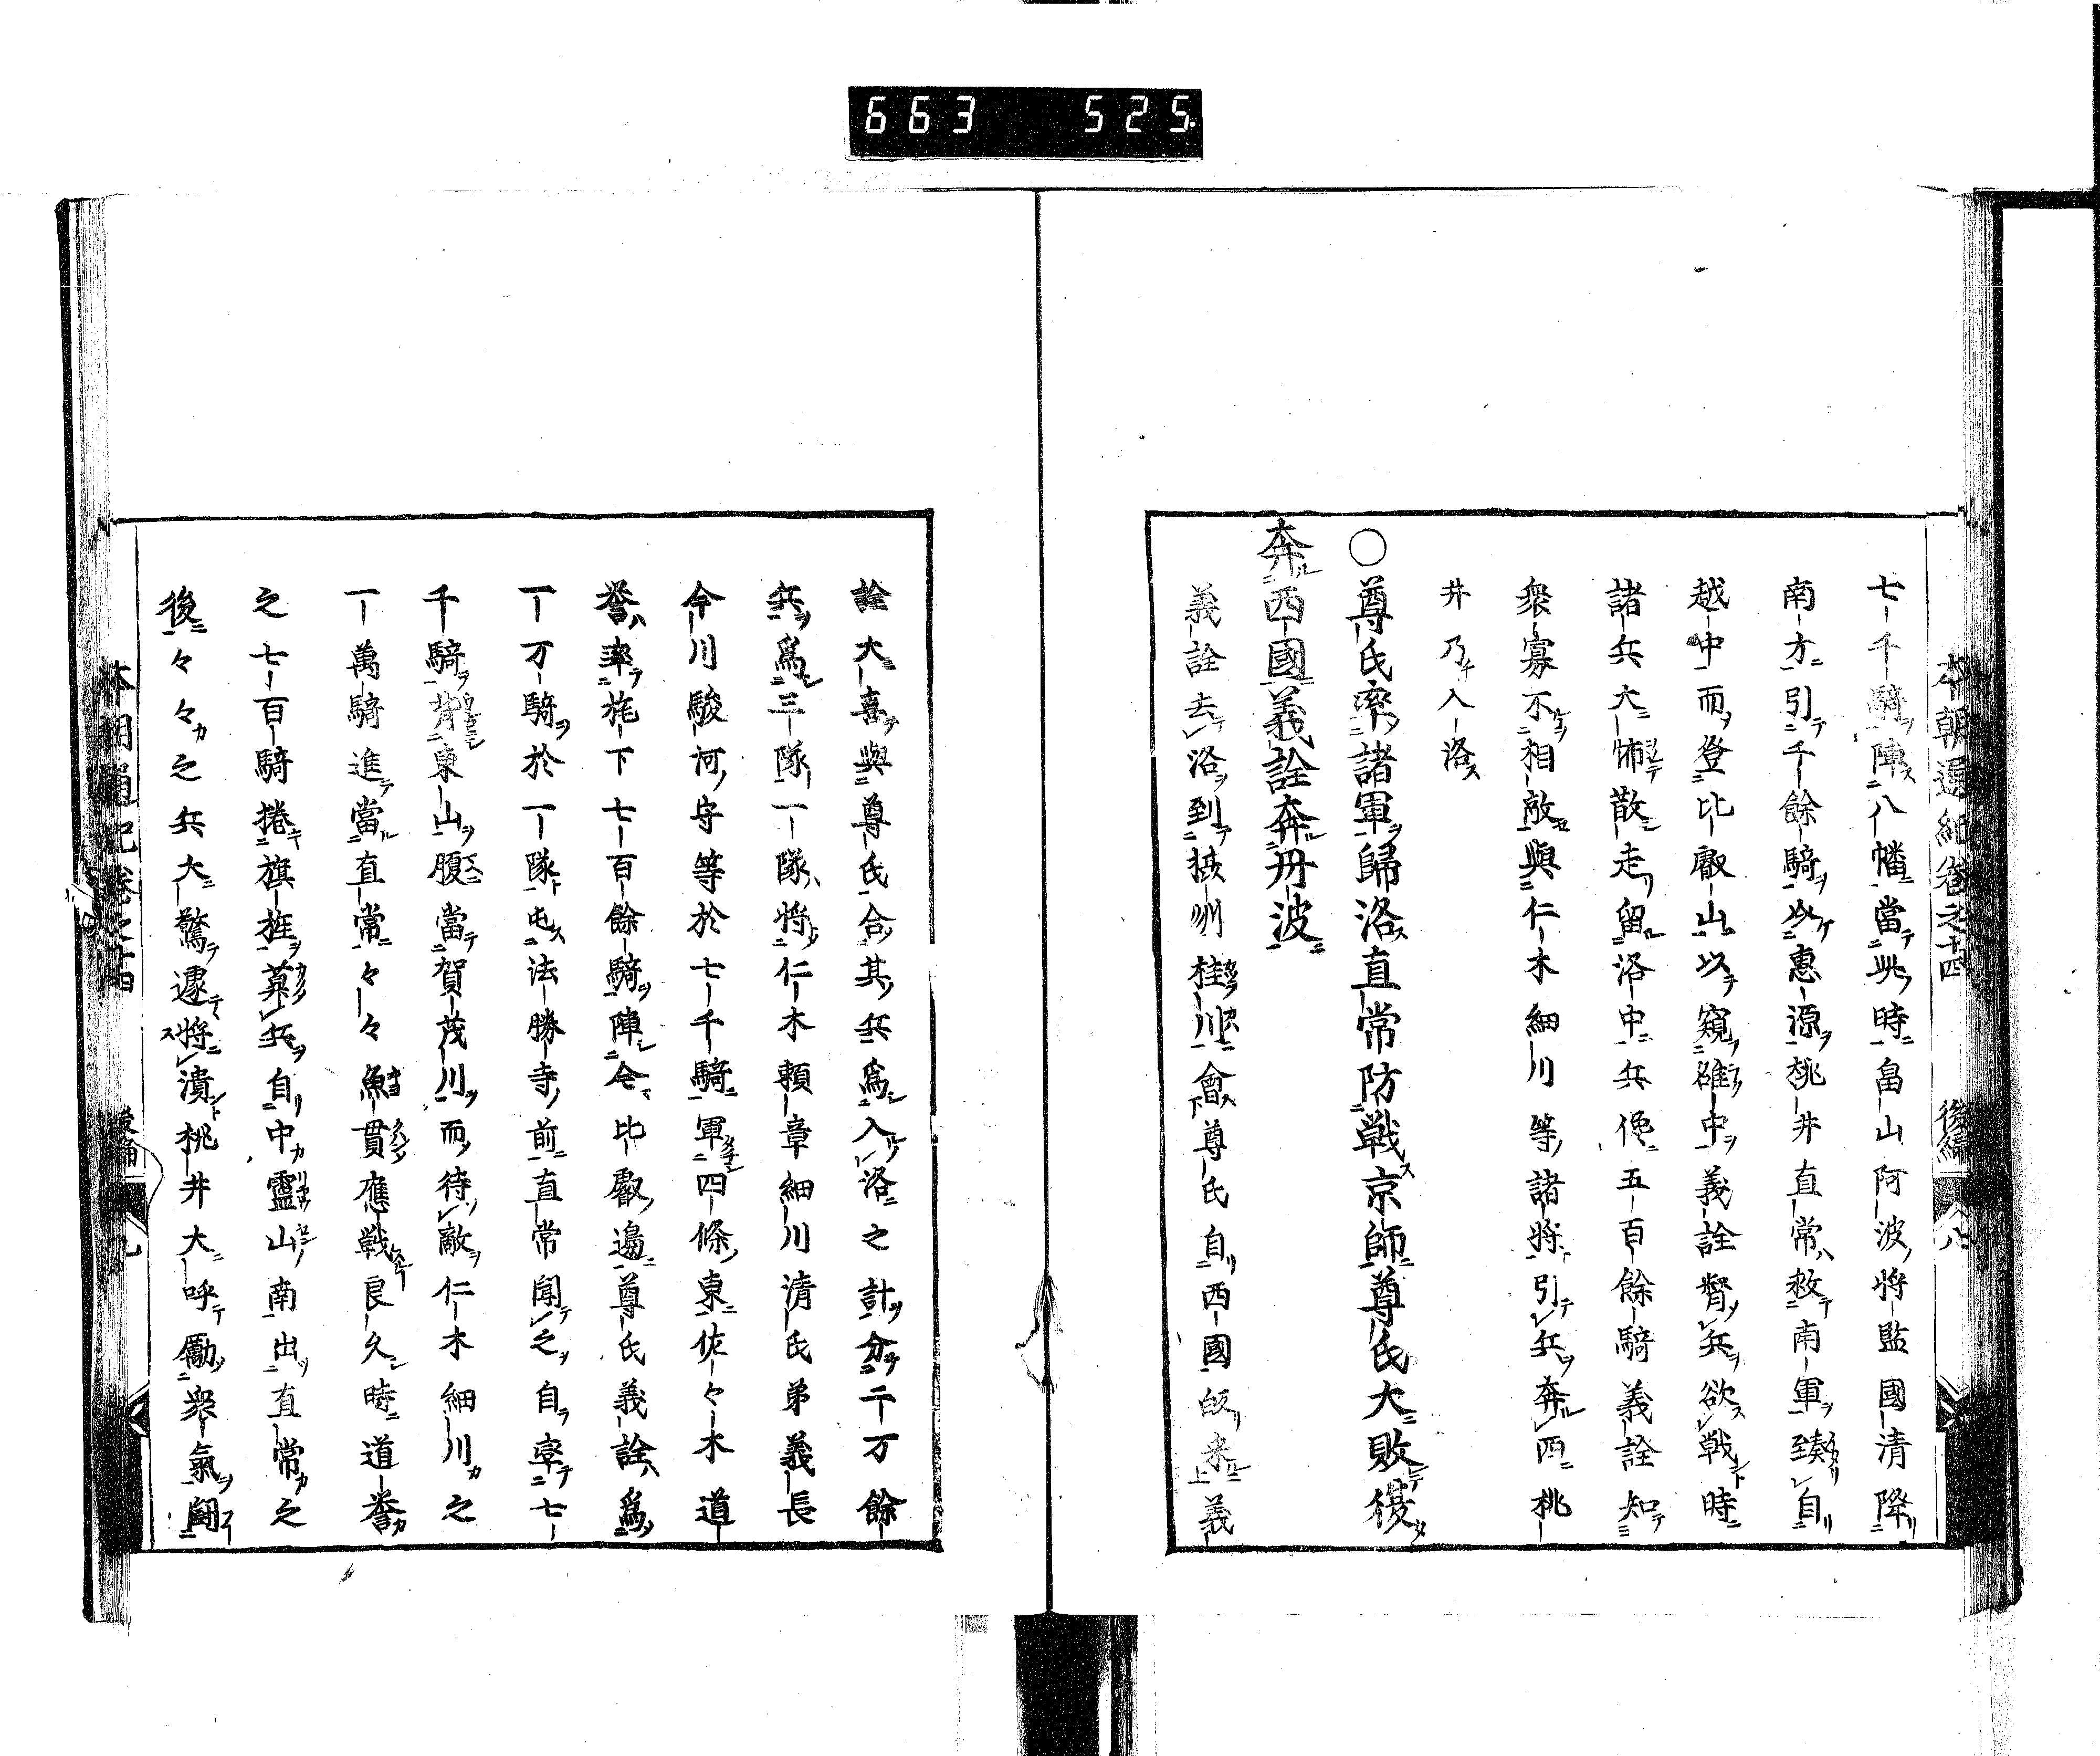 663 525
本朝通紀卷之十四 後編 八
七千騎陣八幡當此時畠山阿波將監國清降
南方引千餘騎必惠源桃井直常赦南軍臻自
越中而登比叡山以窺雒中義詮督兵欲戰時
諸兵大怖散走留洛中兵僅五百餘騎義詮知
衆寡不相敵與仁木細川等諸將引兵奔西桃
井乃入洛
〇尊氏率諸軍歸洛直常防戰京師尊氏大敗復
奔西國義詮奔丹波
義詮去洛到揔州桂川會尊氏自西國皈來義
詮大喜與尊氏合其兵爲入洛之計分二万餘
兵爲三隊一隊將仁木賴章細川淸氏弟義長
今川駿河守等於七千騎軍四條東佐々木道
誉率旄下七百餘騎陣今比叡邊尊氏義詮爲
一万騎於一隊屯法勝寺前直常聞之自率七
千騎背東山腹當賀茂川而待敵仁木細川之
一萬騎進當直常々々魚貫應戰良久時道誉
之七百騎捲旗旌莫兵自中靈山南出直常之
後々々之兵大驚遽將潰桃井大呼勵衆氣鬪
本朝通紀卷之十四 後編 九